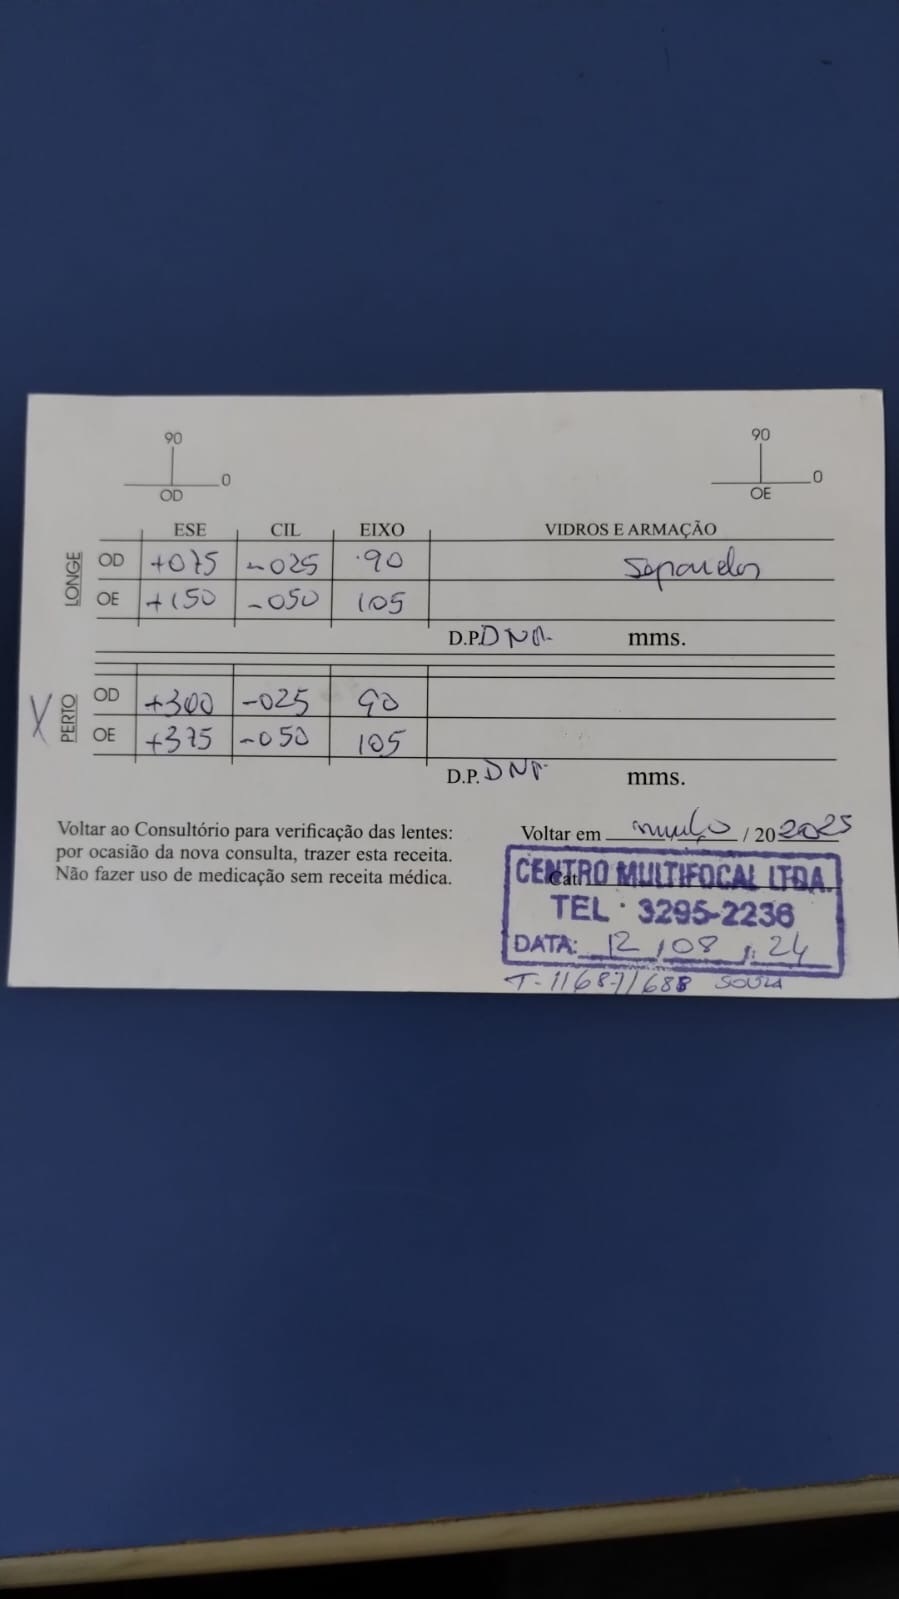 90 90
0 0
OD OE
ESE CIL EIXO VIDROS E ARMAÇÃO
LONGE OD +075 -025 90 Separados
OE +150 -050 105
D.P. DNP mms.
X PERTO OD +300 -025 90
OE +375 -050 105
D.P. DNP mms.
Voltar ao Consultório para verificação das lentes: Voltar em / 20 2025
por ocasião da nova consulta, trazer esta receita.
Não fazer uso de medicação sem receita médica.
Cat.
CENTRO MULTIFOCAL LTDA.
TEL 3295-2236
DATA: 12 / 08 / 24
T-11687/688 SOUZA